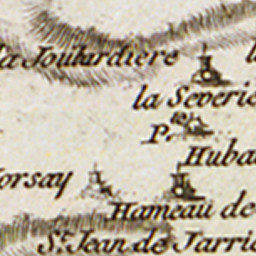 la Joulardiere
la Severie
P.
Huba
orsay
Hameau de
St. Jean de Jarrie